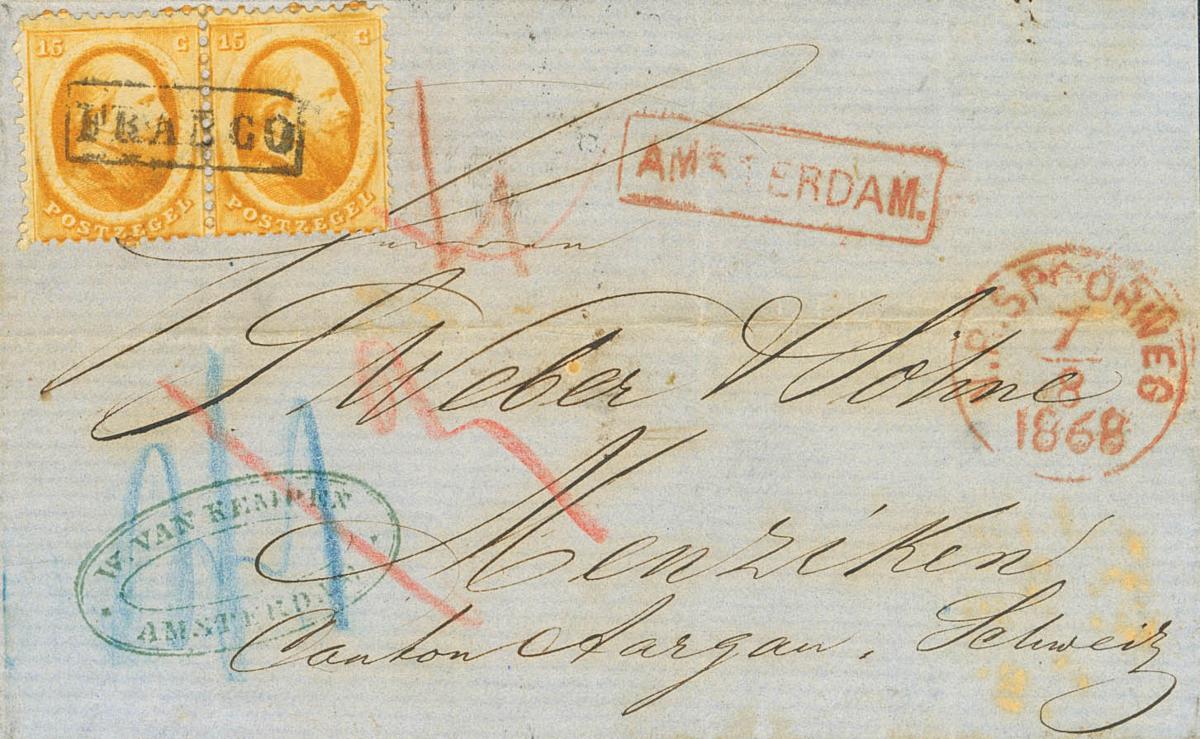 15 C 15 C
FRANCO
POSTZEGEL POSTZEGEL
AMSTERDAM.
N.R. SPOORWEG
7
8
1868
Weber Söhne
W. VAN KEMPEN
AMSTERDAM
Menziken
Canton Aargau, Schweiz